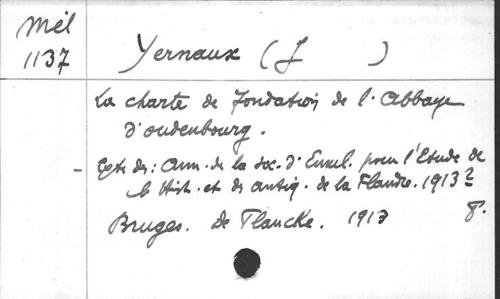 Mél
1137
Yernaux (J )
La charte de fondation de l'Abbaye
d'oudenbourg.
- Extr. des: Ann. de la soc. d'Emul. pour l'Etude de
l'Hist. et des antiq. de la Flandre. 1913
Bruges. De Plancke. 1913 8°.